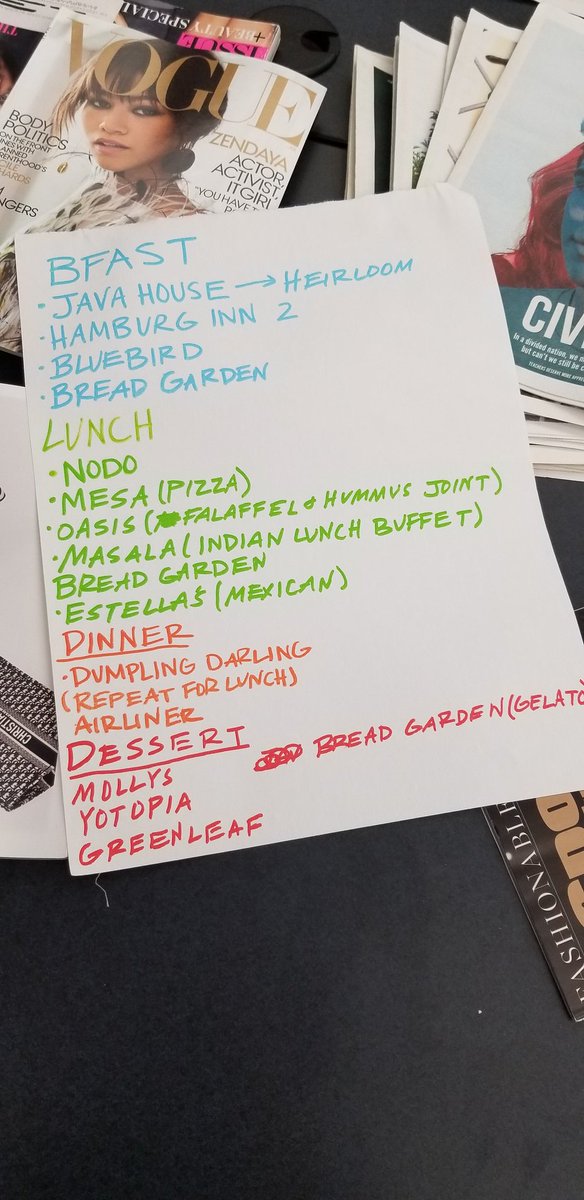 + BEAUTY SPECIAL
ISSUE
VOGUE
BODY
POLITICS
ON THE FRONT
LINES WITH
ZENDAYA
ACTOR,
ACTIVIST,
IT GIRL
"YOU HAVE T
NGERS
CIVI
In a divided nation, we n
but can't we still be c
BFAST
• JAVA HOUSE → HEIRLOOM
• HAMBURG INN 2
• BLUEBIRD
• BREAD GARDEN
LUNCH
• NODO
• MESA (PIZZA)
• OASIS (FALAFFEL & HUMMUS JOINT)
• MASALA (INDIAN LUNCH BUFFET)
BREAD GARDEN
• ESTELLAS (MEXICAN)
DINNER
• DUMPLING DARLING
(REPEAT FOR LUNCH)
AIRLINER
DESSERT
BREAD GARDEN (GELATO
MOLLYS
YOTOPIA
GREENLEAF
CHRISTI
FASHIONABLE